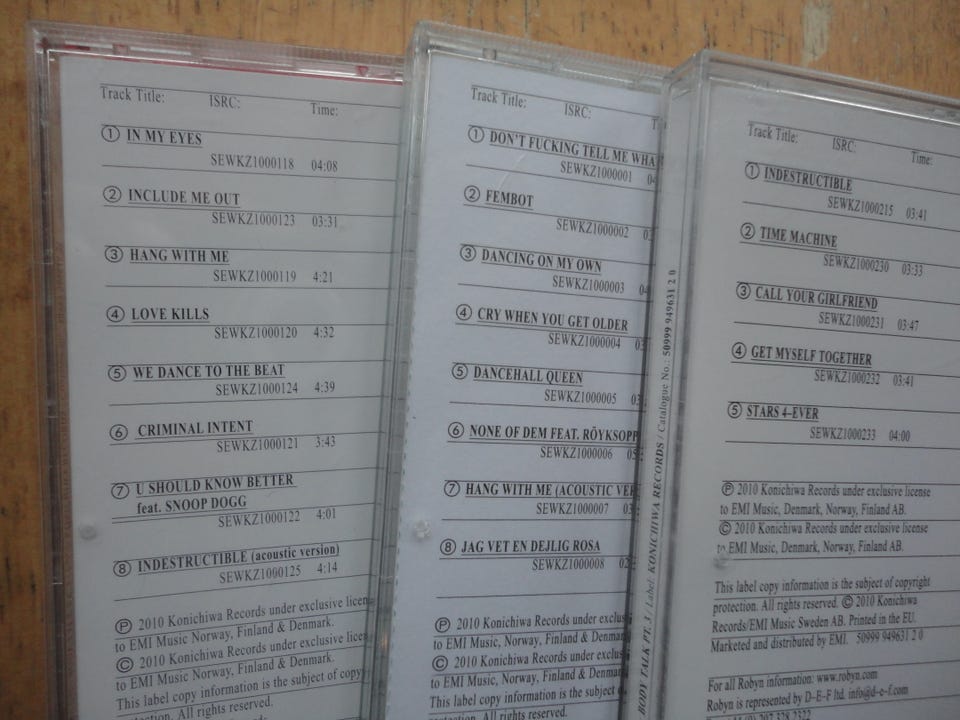 Track Title: ISRC: Time:
① IN MY EYES
SEWKZ1000118 04:08
② INCLUDE ME OUT
SEWKZ1000123 03:31
③ HANG WITH ME
SEWKZ1000119 4:21
④ LOVE KILLS
SEWKZ1000120 4:32
⑤ WE DANCE TO THE BEAT
SEWKZ1000124 4:39
⑥ CRIMINAL INTENT
SEWKZ1000121 3:43
⑦ U SHOULD KNOW BETTER
feat. SNOOP DOGG
SEWKZ1000122 4:01
⑧ INDESTRUCTIBLE (acoustic version)
SEWKZ1000125 4:14
Ⓟ 2010 Konichiwa Records under exclusive
to EMI Music Norway, Finland & Denmark.
© 2010 Konichiwa Records under exclusive
to EMI Music Norway, Finland & Denmark.
This label copy information is the subject of
All rights
Track Title: ISRC:
① DON'T FUCKING TELL ME
SEWKZ1000001
② FEMBOT
SEWKZ1000002
③ DANCING ON MY OWN
SEWKZ1000003
④ CRY WHEN YOU GET OLDER
SEWKZ1000004
⑤ DANCEHALL QUEEN
SEWKZ1000005
⑥ NONE OF DEM FEAT. RÖYKSOPP
SEWKZ1000006
⑦ HANG WITH ME (ACOUSTIC
SEWKZ1000007
⑧ JAG VET EN DEJLIG ROSA
SEWKZ1000008
Ⓟ 2010 Konichiwa Records under
to EMI Music, Norway, Finland &
© 2010 Konichiwa Records under
to EMI Music, Norway, Finland &
This label copy information is the subject
All rights
BODY TALK PT. 3 / Label: KONICHIWA RECORDS / Catalogue No.: 50999 949631 2 0
Track Title: ISRC: Time:
① INDESTRUCTIBLE
SEWKZ1000215 03:41
② TIME MACHINE
SEWKZ1000230 03:33
③ CALL YOUR GIRLFRIEND
SEWKZ1000231 03:47
④ GET MYSELF TOGETHER
SEWKZ1000232 03:41
⑤ STARS 4-EVER
SEWKZ1000233 04:00
Ⓟ 2010 Konichiwa Records under exclusive license
to EMI Music, Denmark, Norway, Finland AB.
© 2010 Konichiwa Records under exclusive license
to EMI Music, Denmark, Norway, Finland AB.
This label copy information is the subject of copyright
protection. All rights reserved. © 2010 Konichiwa
Records/EMI Music Sweden AB. Printed in the EU.
Marketed and distributed by EMI. 50999 949631 2 0
For all Robyn information: www.robyn.com
Robyn is represented by D-E-F ltd. info@d-e-f.com